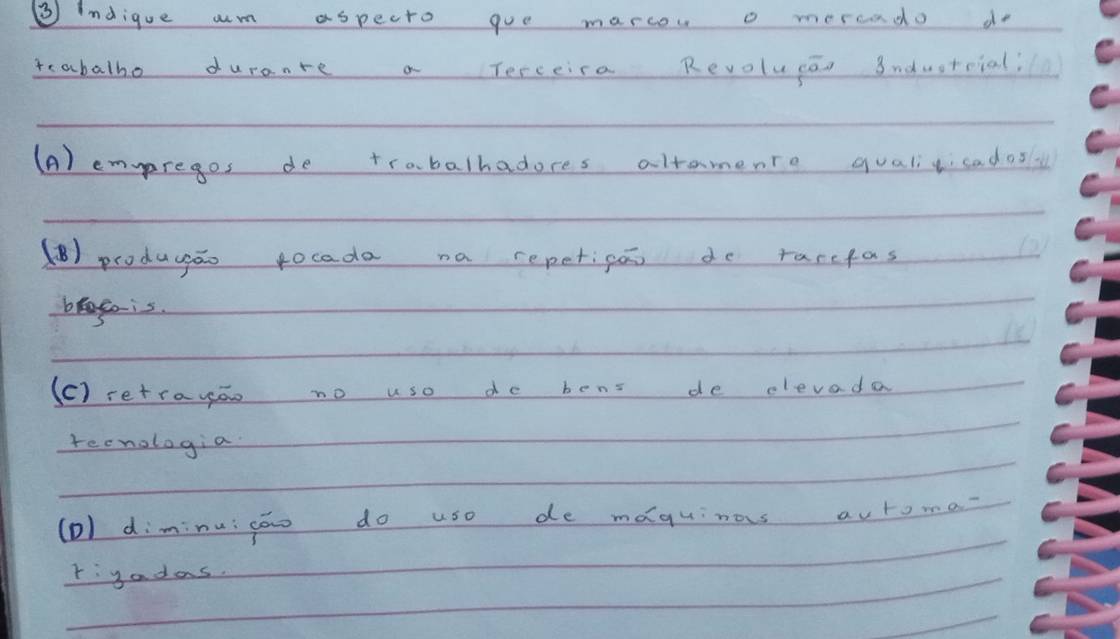 ③ Indique um aspecto que marcou o mercado de
trabalho durante a Terceira Revolução Industrial:
(A) empregos de trabalhadores altamente qualificados
(B) produção focada na repetição de tarefas
braçais.
(C) retração no uso de bens de elevada
tecnologia.
(D) diminuição do uso de máquinas automa-
tizadas.